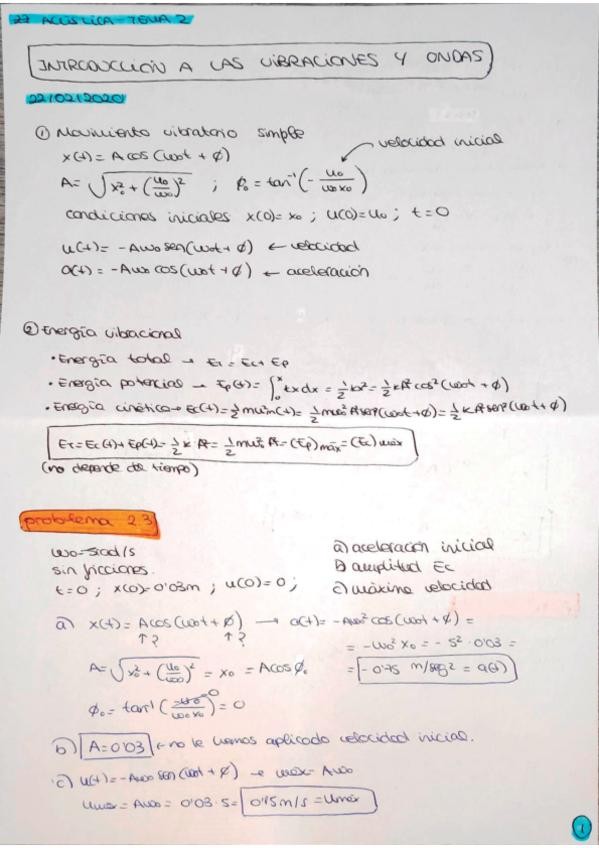 ACÚSTICA - TEMA 2
INTRODUCCIÓN A LAS VIBRACIONES Y ONDAS
22/02/2020
① Movimiento vibratorio simple
x(t) = A cos(ω₀t + ϕ)
velocidad inicial
A = √(x₀² + (u₀/ω₀)²) ; ϕ₀ = tan⁻¹(- u₀/ω₀x₀)
condiciones iniciales x(0) = x₀ ; u(0) = u₀ ; t = 0
u(t) = -Aω₀ sen(ω₀t + ϕ) ← velocidad
a(t) = -Aω₀ cos(ω₀t + ϕ) ← aceleración
② Energía vibracional
• Energía total → E_T = E_c + E_p
• Energía potencial → E_p(t) = ∫₀ˣ fx dx = 1/2 kx² = 1/2 kA² cos²(ω₀t + ϕ)
• Energía cinética → E_c(t) = 1/2 mu²(t) = 1/2 mω₀² A² sen²(ω₀t + ϕ) = 1/2 kA² sen²(ω₀t + ϕ)
E_T = E_c(t) + E_p(t) = 1/2 k A² = 1/2 mω₀² A² = (E_p)máx = (E_c)máx
(no depende de tiempo)
problema 2.3
ω₀ = 5rad/s
a) aceleración inicial
sin fricciones.
b) amplitud Ec
t = 0 ; x(0) = 0'03m ; u(0) = 0 ;
c) máxima velocidad
a) x(t) = A cos(ω₀t + ϕ) → a(t) = -Aω₀² cos(ω₀t + ϕ) =
↑? ↑?
= -ω₀² x₀ = -5² · 0'03 =
A = √(x₀² + (u₀/ω₀)²) = x₀ = A cos ϕ₀
= -0'75 m/seg² = a(t)
ϕ₀ = tan⁻¹(-u₀/ω₀x₀) = 0
b) A = 0'03 ← no le hemos aplicado velocidad inicial.
c) u(t) = -Aω₀ sen(ω₀t + ϕ) → umáx = Aω₀
umáx = Aω₀ = 0'03 · 5 = 0'15 m/s = umáx
1